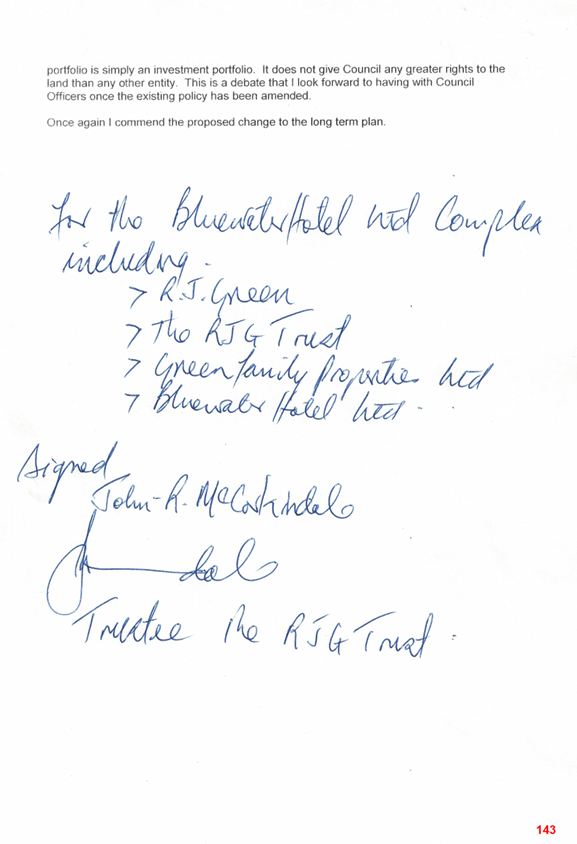 portfolio is simply an investment portfolio.  It does not give Council any greater rights to the
land than any other entity.  This is a debate that I look forward to having with Council
Officers once the existing policy has been amended.
Once again I commend the proposed change to the long term plan.
for the Bluewater Hotel Ltd Complex
including.
> R.J. Green
> The RJG Trust
> Green family Properties Ltd
> Bluewater Hotel Ltd.
Signed
John R. McCorkindale
Trustee The RJG Trust.
143